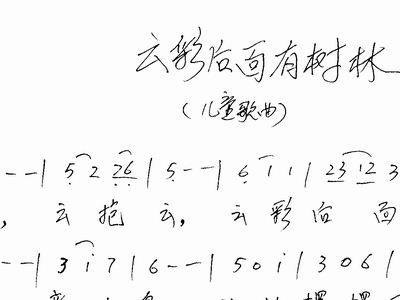 云彩后面有树林
(儿童歌曲)
--| 5 2 26 | 5 -- | 6 1 1 | 23 12 3
, 云 抱 云, 云 彩 后 面
--| 3 i 7 | 6 -- | 5 0 i | 3 0 6 |